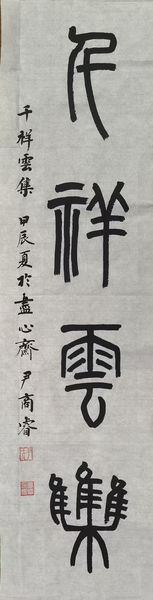 千祥雲集
千祥雲集 甲辰夏於盡心齋 尹商睿